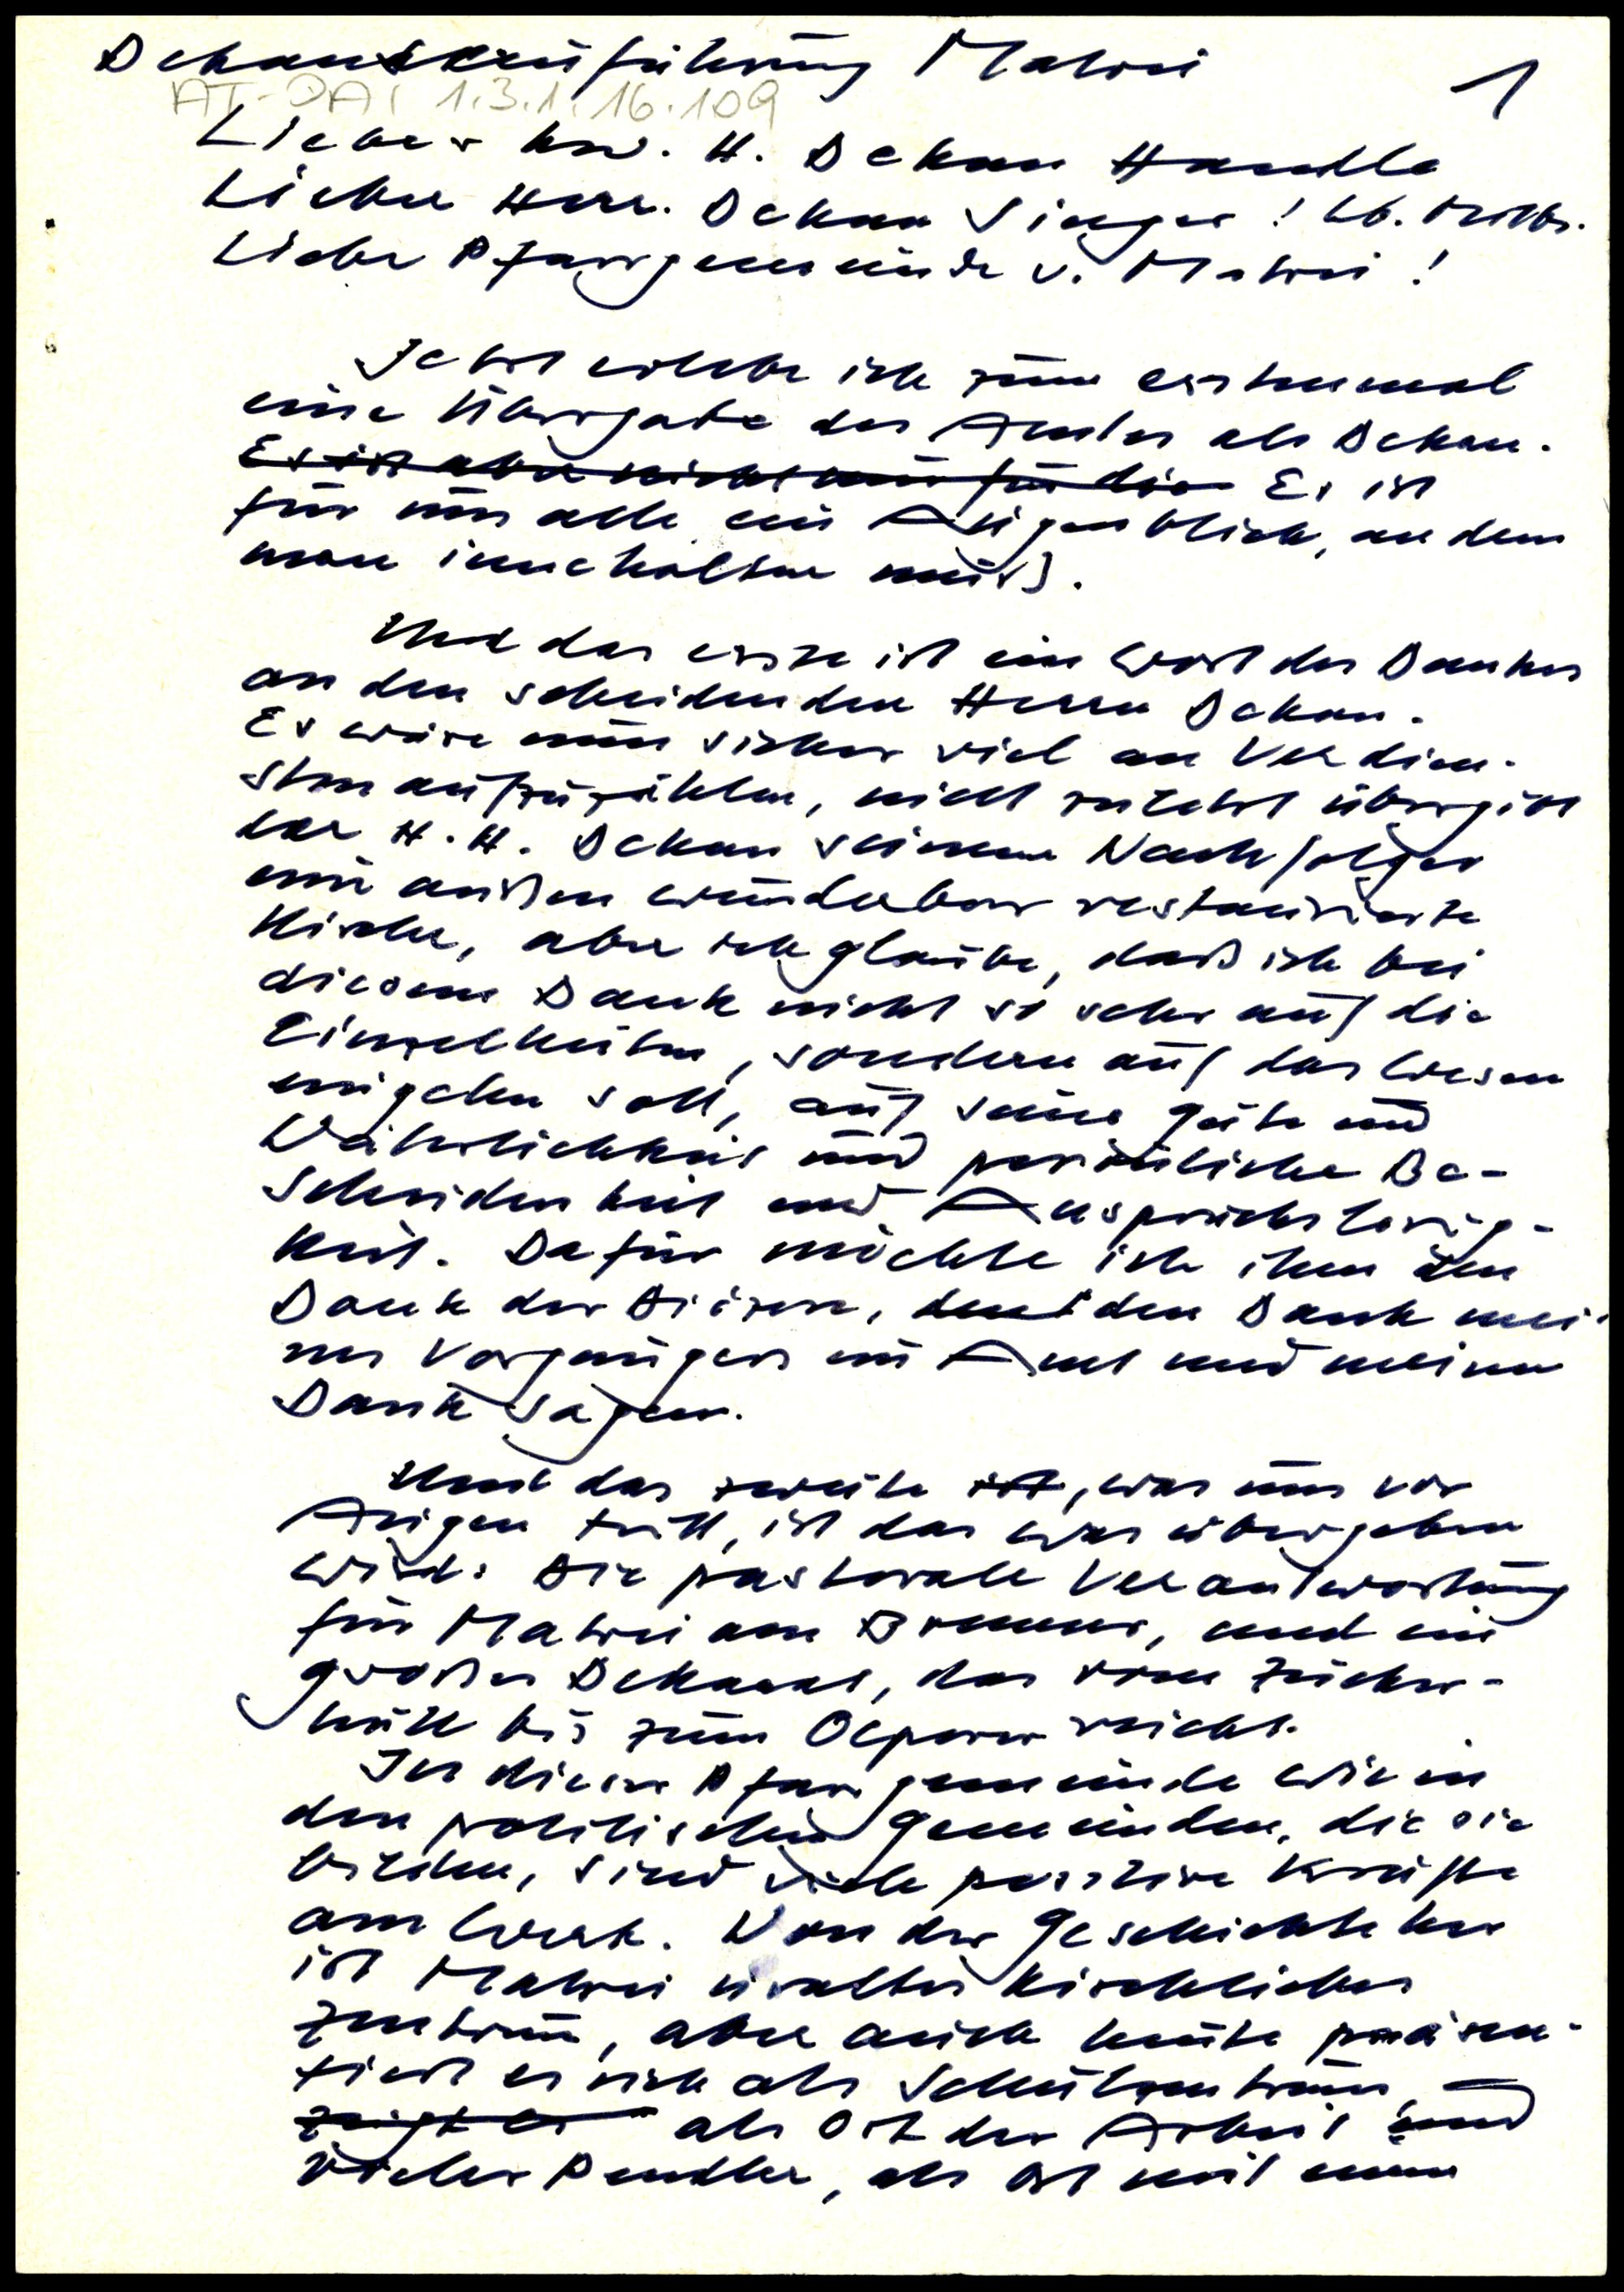 Dekanseinführung Matrei
1
AT-DAI 1.3.1.16.109
Lieber hw. H. Dekan
Lieber Herr. Dekan Singer! Lb. Mitbr.
Liebe Pfarrgemeinde v. Matrei!
Jetzt erlebe ich zum erstenmal
eine Übergabe des Amtes als Dekan.
Es ist aber nicht nur für die Es ist
für uns alle ein Augenblick, an dem
man innehalten muß.
Und das erste ist ein Wort des Dankes
an den scheidenden Herrn Dekan.
Es wäre nun sicher viel an Verdien-
sten aufzuzählen, nicht zuletzt übergibt
der H. H. Dekan seinem Nachfolger
eine außen wunderbar restaurierte
Kirche, aber ich glaube, daß ich bei
diesem Dank nicht so sehr auf die
Einzelheiten, sondern auf das Wesen
eingehen soll, auf seine Güte und
Väterlichkeit und persönliche Be-
scheidenheit und Anspruchslosig-
keit. Dafür möchte ich ihm den
Dank der Diözese, den Dank mei-
nes Vorgängers im Amt und meinen
Dank sagen.
Und das zweite ist, was uns vor
Augen tritt, ist das was übergeben
wird: Die pastorale Verantwortung
für Matrei am Brenner, und ein
großes Dekanat, das vom Zucker-
hütl bis zum Olperer reicht.
In dieser Pfarrgemeinde wie in
den politischen Gemeinden, die sie
bilden, sind viele positive Kräfte
am Werk. Von der Geschichte her
ist Matrei uraltes kirchliches
Zentrum, aber auch heute präsen-
tiert es sich als Schulzentrum,
zeigt es als Ort der Arbeit und
vieler Pendler, als Ort mit einem